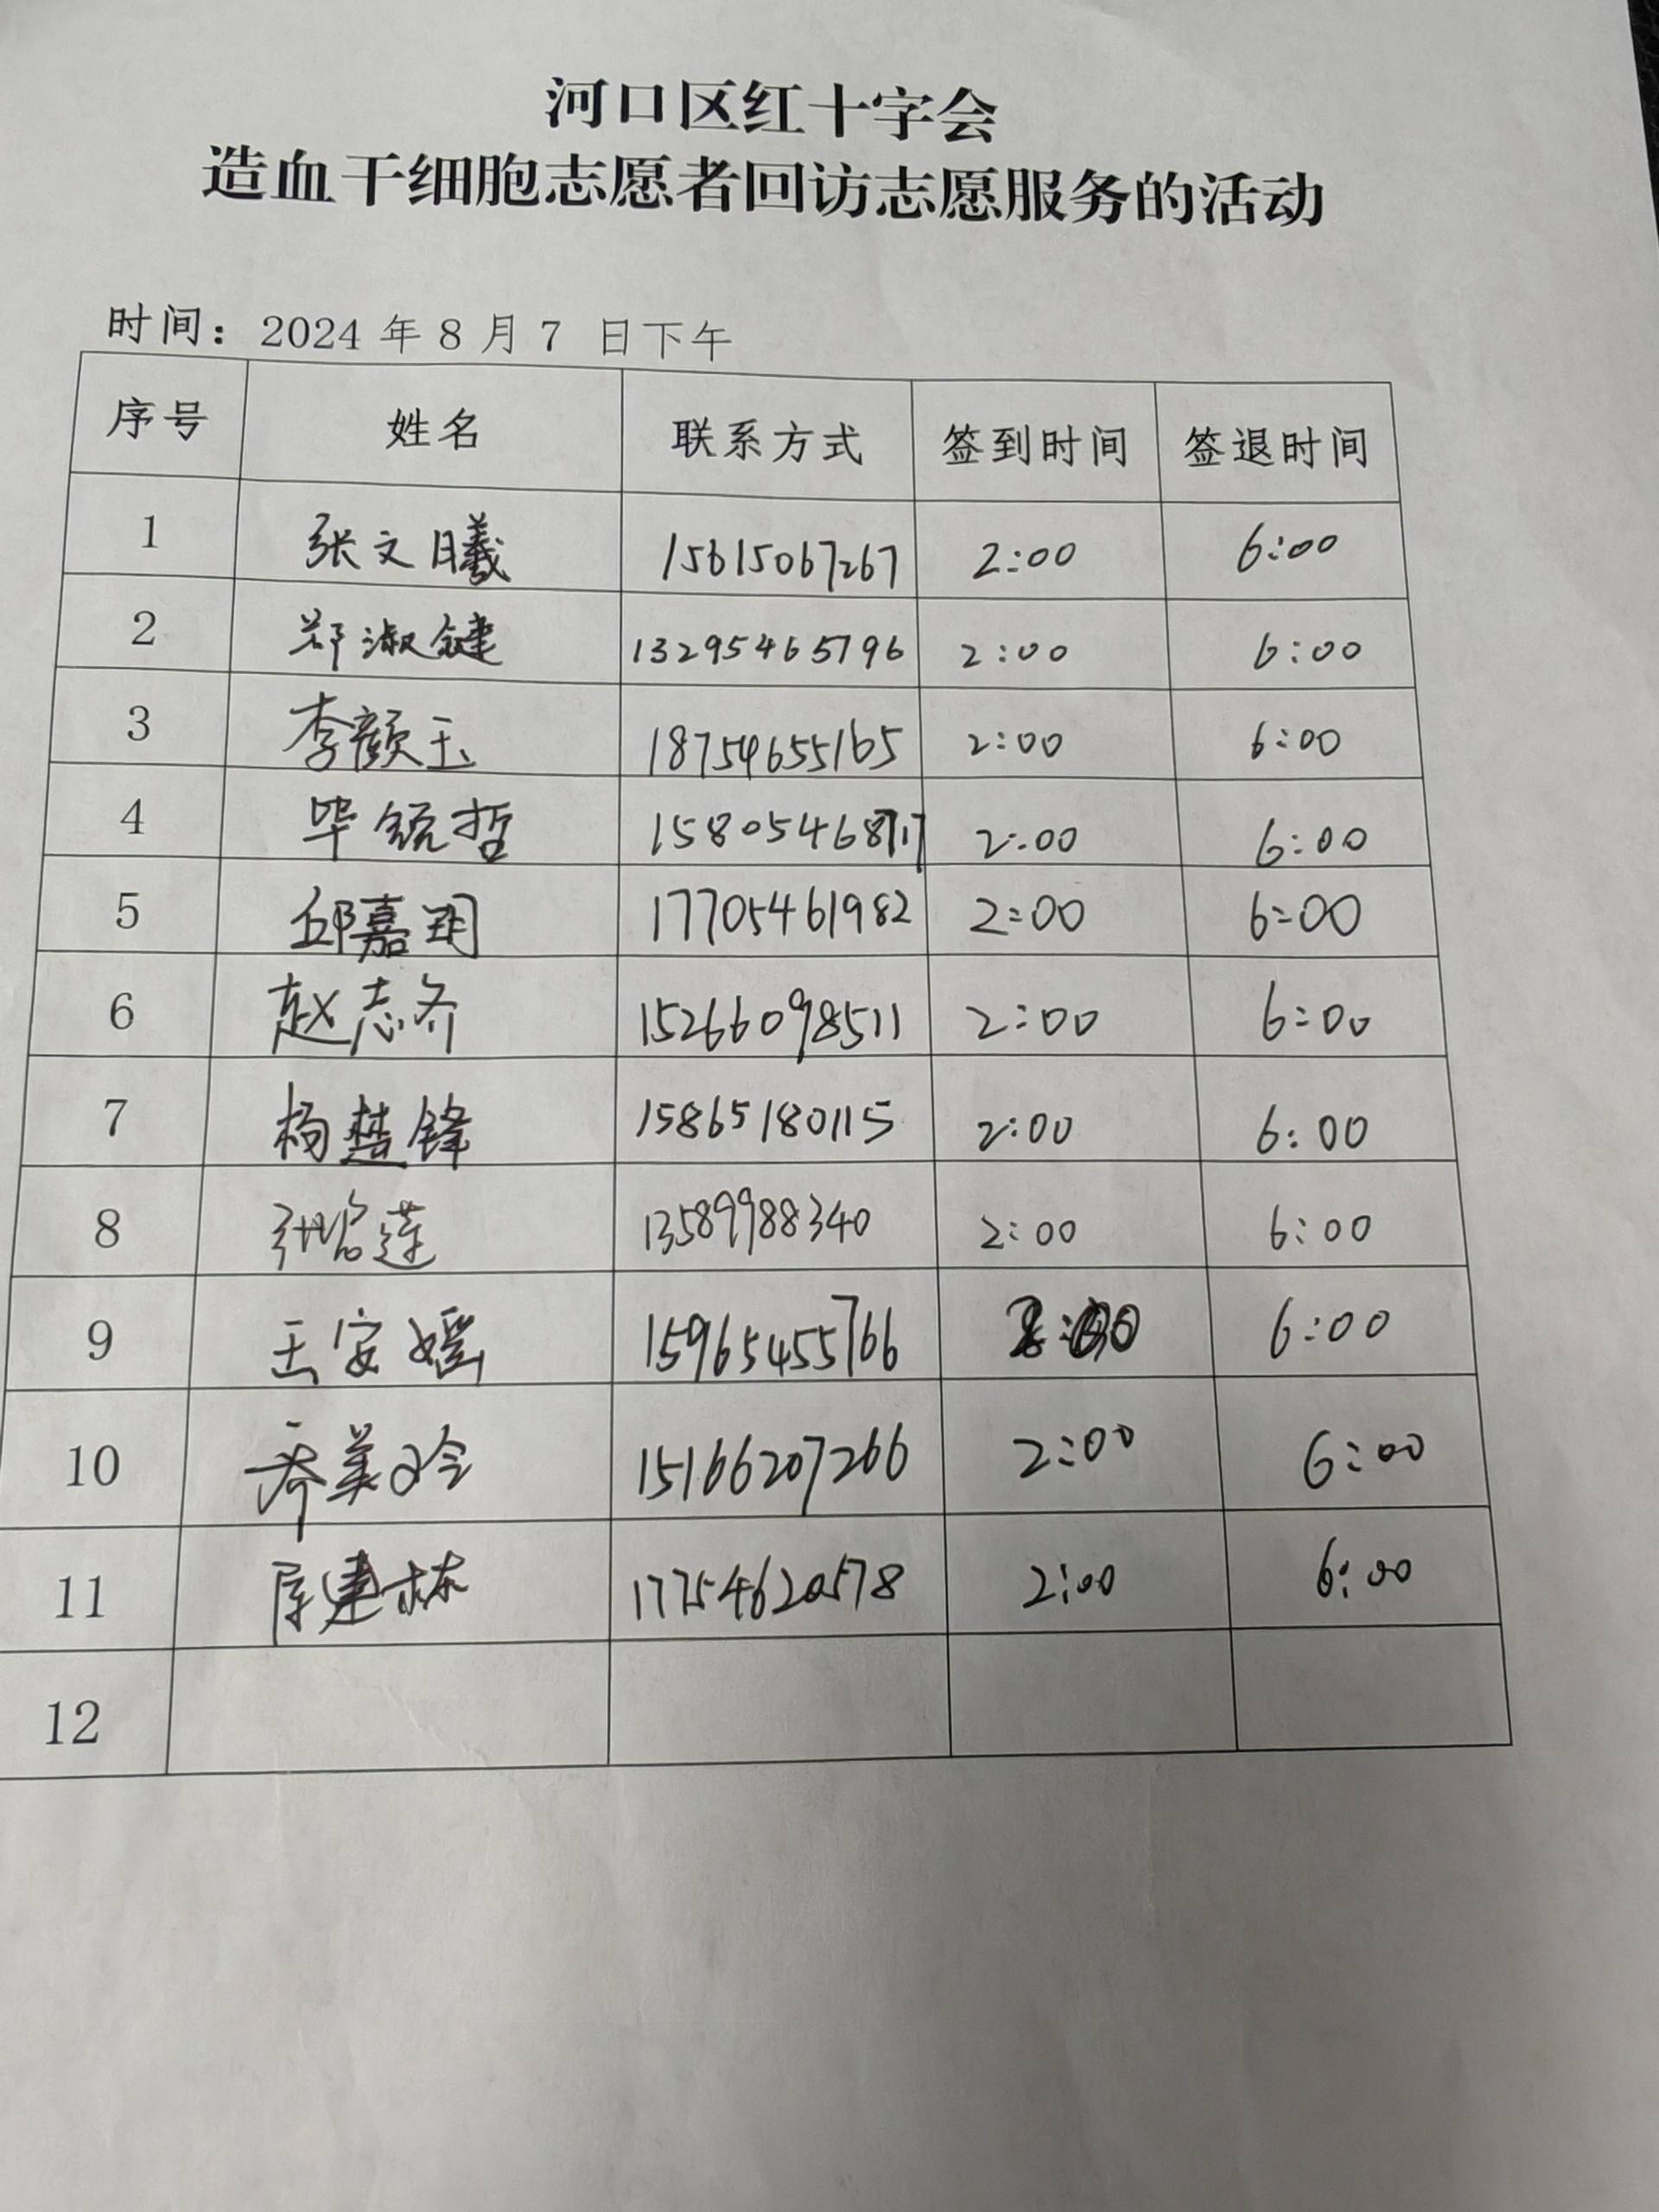 河口区红十字会
造血干细胞志愿者回访志愿服务的活动
时间：2024年8月7 日下午
序号 姓名 联系方式 签到时间 签退时间
1 张文曦 15615067267 2:00 6:00
2 郑淑键 13295465796 2:00 6:00
3 李颜玉 18754655165 2:00 6:00
4 毕毓哲 15805468717 2:00 6:00
5 邱嘉玥 17705461982 2:00 6:00
6 赵志齐 15266098511 2:00 6:00
7 杨楚锋 15865180115 2:00 6:00
8 13589988340 2:00 6:00
9 王安嫣 15965455766 6:00
10 乔美玲 15166207266 2:00 6:00
11 建栋 17754620578 2:00 6:00
12